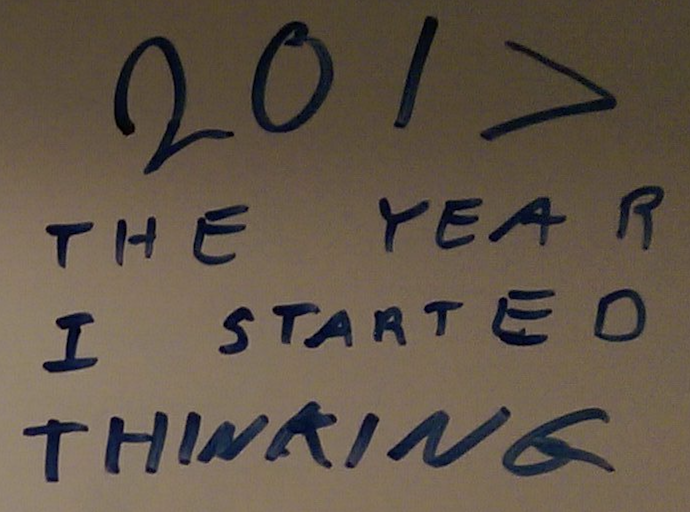 201>
THE YEAR
I STARTED
THINKING